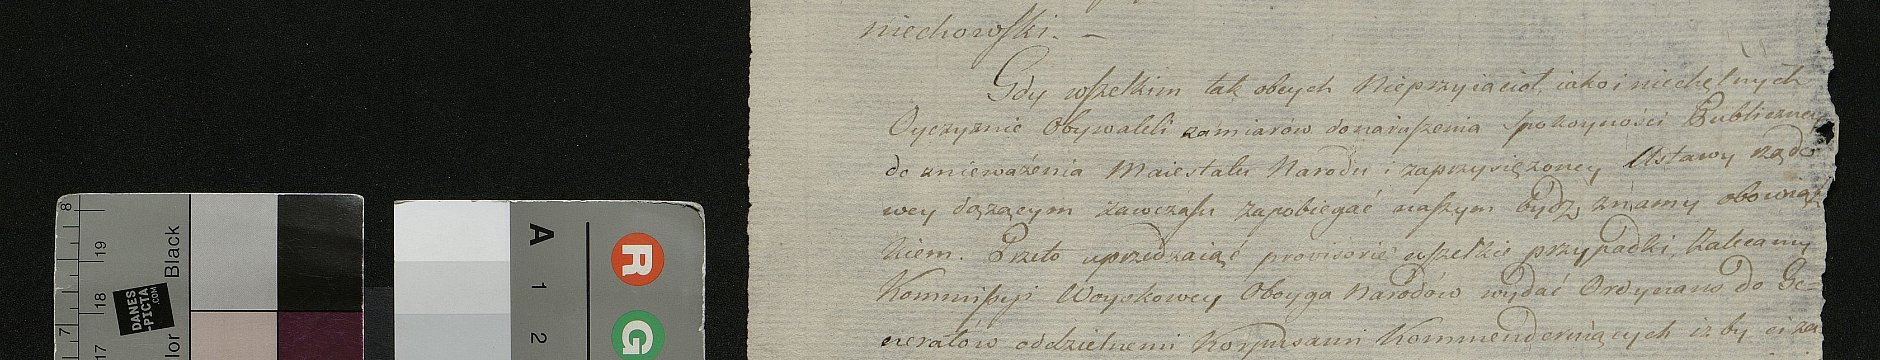 niechowski. –
Gdy wszelkim tak obcych Nieprzyiaciół, iako i niechętnych
Oyczyznie Obywateli zamiarów donaruszenia spokoyności Publiczney
do unieważenia Maiestatu Narodu i zaprzysiężoney Ustawy rządo
wey dążącym zawczasu zapobiegać naszym bydz znamy obowiąz
kiem. Przeto uprzedzaiąc provisorié wszelkie przypadki, Zalecamy
Kommissyi Woyskowey Oboyga Narodów wydać Ordynans do Ge=
nerałów oddzielnemi Korpusami Kommenderuiących iżby ci za
8
19
18
7
17
Black
lor
DANES
-PICTA
.COM
A
1
2
R
G